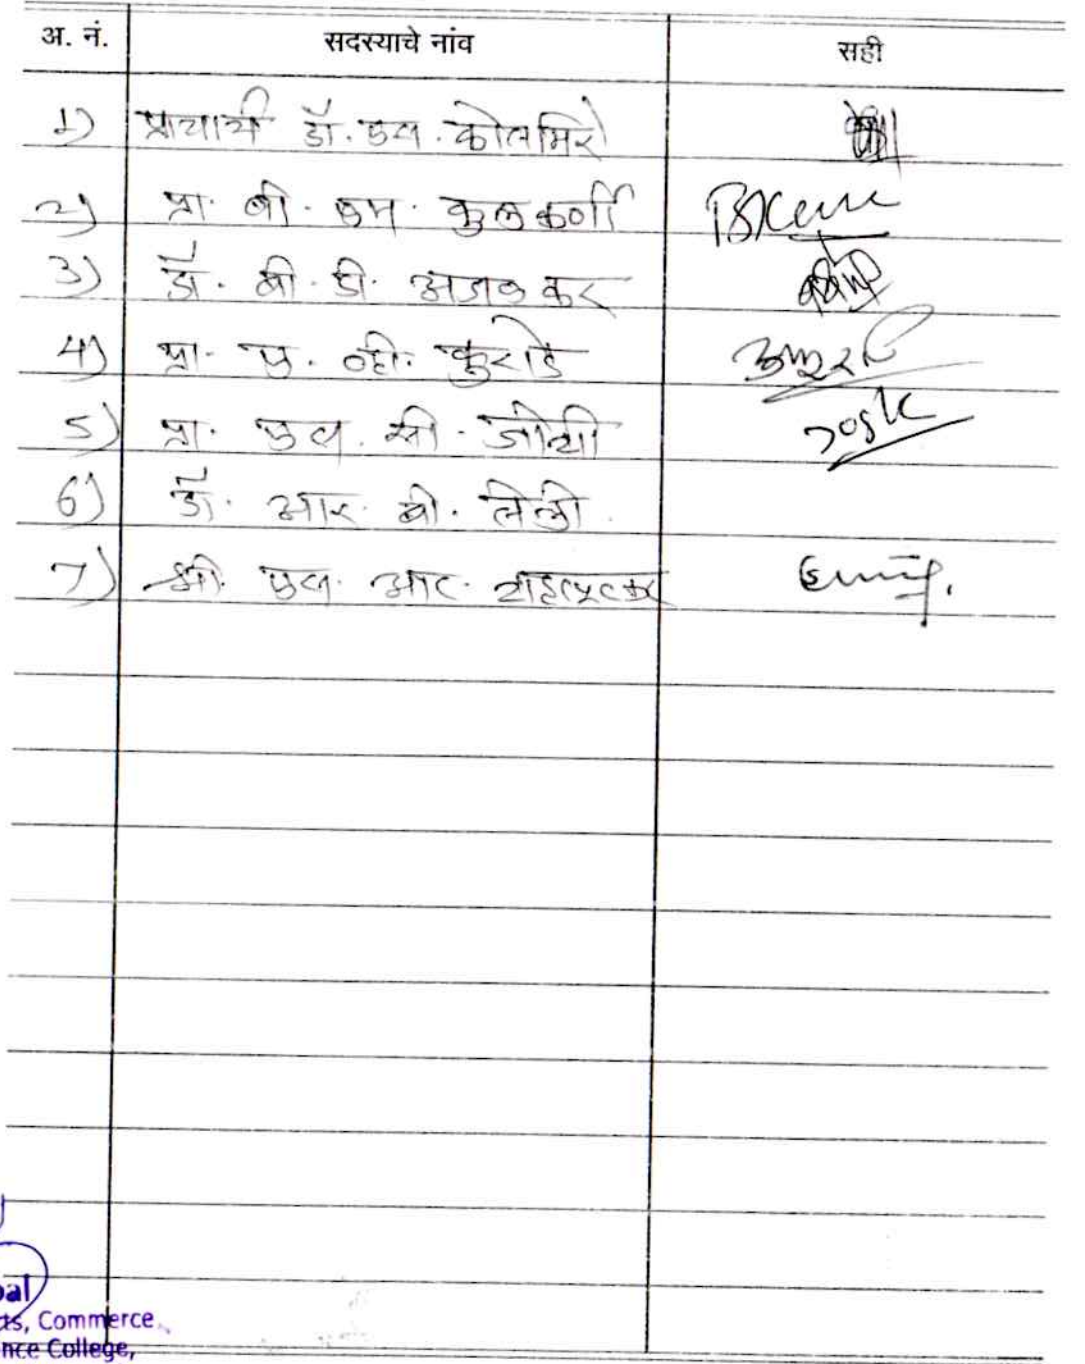 अ. नं. सदस्याचे नांव सही
1) प्राचार्य डॉ. एस. कोलमिरे
2) प्रा. बी. एम. कुलकर्णी
3) डॉ. बी. डी. अजळकर
4) प्रा. ए. व्ही. कुराडे
5) प्रा. एस. सी. जोशी Joshi
6) डॉ. आर. बी.
7) श्री. एस. आर.
pal
ts, Commerce
nce College,